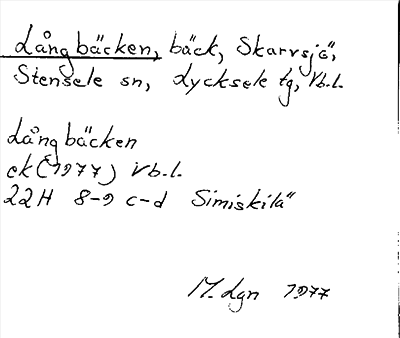 Långbäcken, bäck, Skarvsjö,
Stensele sn, Lycksele tg, Vb.l.
Långbäcken
ek (1977) Vb.l.
22H 8-9 c-d Simiskilä"
M. Lgn 1977